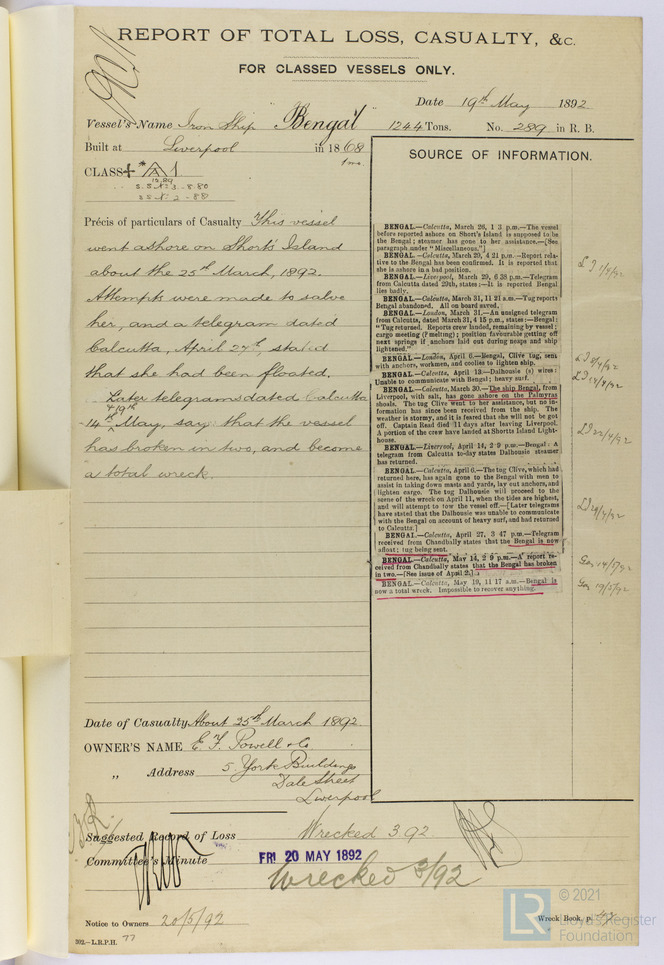 REPORT OF TOTAL LOSS, CASUALTY, &c.
FOR CLASSED VESSELS ONLY.
Date 19th May 1892
Vessel's Name Iron Ship "Bengal" 1244 Tons. No. 289 in R. B.
Built at Liverpool in 1868
CLASS + A 1
S.S. No. 3 - 8.80
S.S. No. 2 - 88
Précis of particulars of Casualty This vessel
went ashore on Short's Island
about the 25th March, 1892.
Attempts were made to salve
her, and a telegram dated
Calcutta, April 27th, stated
that she had been floated.
Later telegrams dated Calcutta
& 19th
14th May, say that the vessel
has broken in two, and become
a total wreck.
Date of Casualty About 25th March 1892
OWNER'S NAME E. F. Powell & Co.
„ Address 5 York Buildings
Dale Street
Liverpool
SOURCE OF INFORMATION.
BENGAL.—Calcutta, March 26, 1 3 p.m.—The vessel
before reported ashore on Short's Island is supposed to be
the Bengal; steamer has gone to her assistance.—[See
paragraph under "Miscellaneous."]
BENGAL.—Calcutta, March 29, 4 21 p.m.—Report rela-
tive to the Bengal has been confirmed. It is reported that
she is ashore in a bad position.
BENGAL.—Liverpool, March 29, 6 38 p.m.—Telegram
from Calcutta dated 29th, states:—It is reported Bengal
lies badly.
BENGAL.—Calcutta, March 31, 11 21 a.m.—Tug reports
Bengal abandoned. All on board saved.
BENGAL.—London, March 31.—An unsigned telegram
from Calcutta, dated March 31, 4 15 p.m., states:—Bengal:
"Tug returned. Reports crew landed, remaining by vessel;
cargo meeting (? melting); position favourable getting off
next springs if anchors laid out during neaps and ship
lightened."
BENGAL.—London, April 6.—Bengal, Clive tug, sent
with anchors, workmen, and coolies to lighten ship.
BENGAL.—Calcutta, April 13.—Dalhousie (s) wires:
Unable to communicate with Bengal; heavy surf.
BENGAL.—Calcutta, March 30.—The ship Bengal, from
Liverpool, with salt, has gone ashore on the Palmyras
shoals. The tug Clive went to her assistance, but no in-
formation has since been received from the ship. The
weather is stormy, and it is feared that she will not be got
off. Captain Read died 11 days after leaving Liverpool.
A portion of the crew have landed at Shortts Island Light-
house.
BENGAL.—Liverpool, April 14, 2 9 p.m.—Bengal: A
telegram from Calcutta to-day states Dalhousie steamer
has returned.
BENGAL.—Calcutta, April 6.—The tug Clive, which had
returned here, has again gone to the Bengal with men to
assist in taking down masts and yards, lay out anchors, and
lighten cargo. The tug Dalhousie will proceed to the
scene of the wreck on April 11, when the tides are highest,
and will attempt to tow the vessel off.—[Later telegrams
have stated that the Dalhousie was unable to communicate
with the Bengal on account of heavy surf, and had returned
to Calcutta.]
BENGAL.—Calcutta, April 27, 3 47 p.m.—Telegram
received from Chandbally states that the Bengal is now
afloat; tug being sent.
BENGAL.—Calcutta, May 14, 2 9 p.m.—A report re-
ceived from Chandbally states that the Bengal has broken
in two.—[See issue of April 2.]
BENGAL.—Calcutta, May 19, 11 17 a.m.—Bengal is
now a total wreck. Impossible to recover anything.
Suggested Record of Loss Wrecked 3.92
Committee's Minute FRI 20 MAY 1892
Wrecked 3/92
Notice to Owners 20/5/92
Wreck Book, p.
302.—L.R.P.H. 77
LR © 2021
Lloyd's Register
Foundation